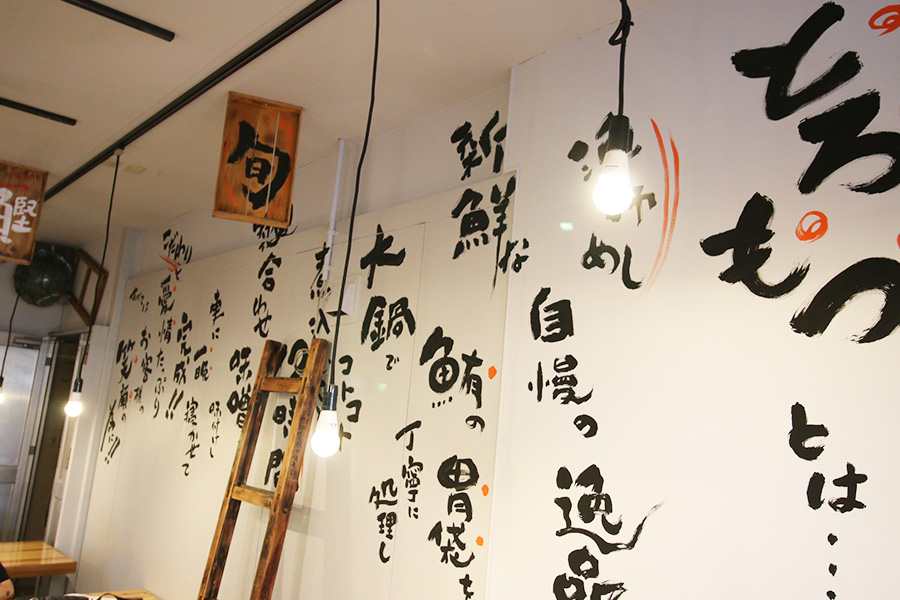 とろ
もつ
とは・・・
めし
自慢の逸品
新鮮な
鮪の胃袋を
丁寧に
処理し
大鍋で
コトコト
煮込
時間
合わせ
味噌
更に
味付けし
一晩
寝かせて
完成!!
こだわりと
愛情たっぷり
お客様の
笑顔の
為に!!
旬
鰹